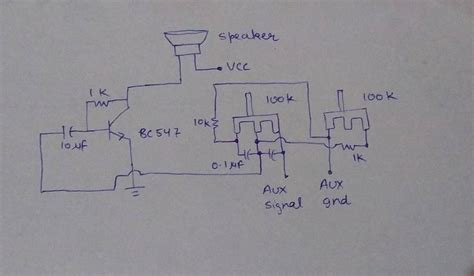 speaker
VCC
1K
100K
100K
10K
BC547
10µF
0.1µF
1K
AUX
signal
AUX
gnd